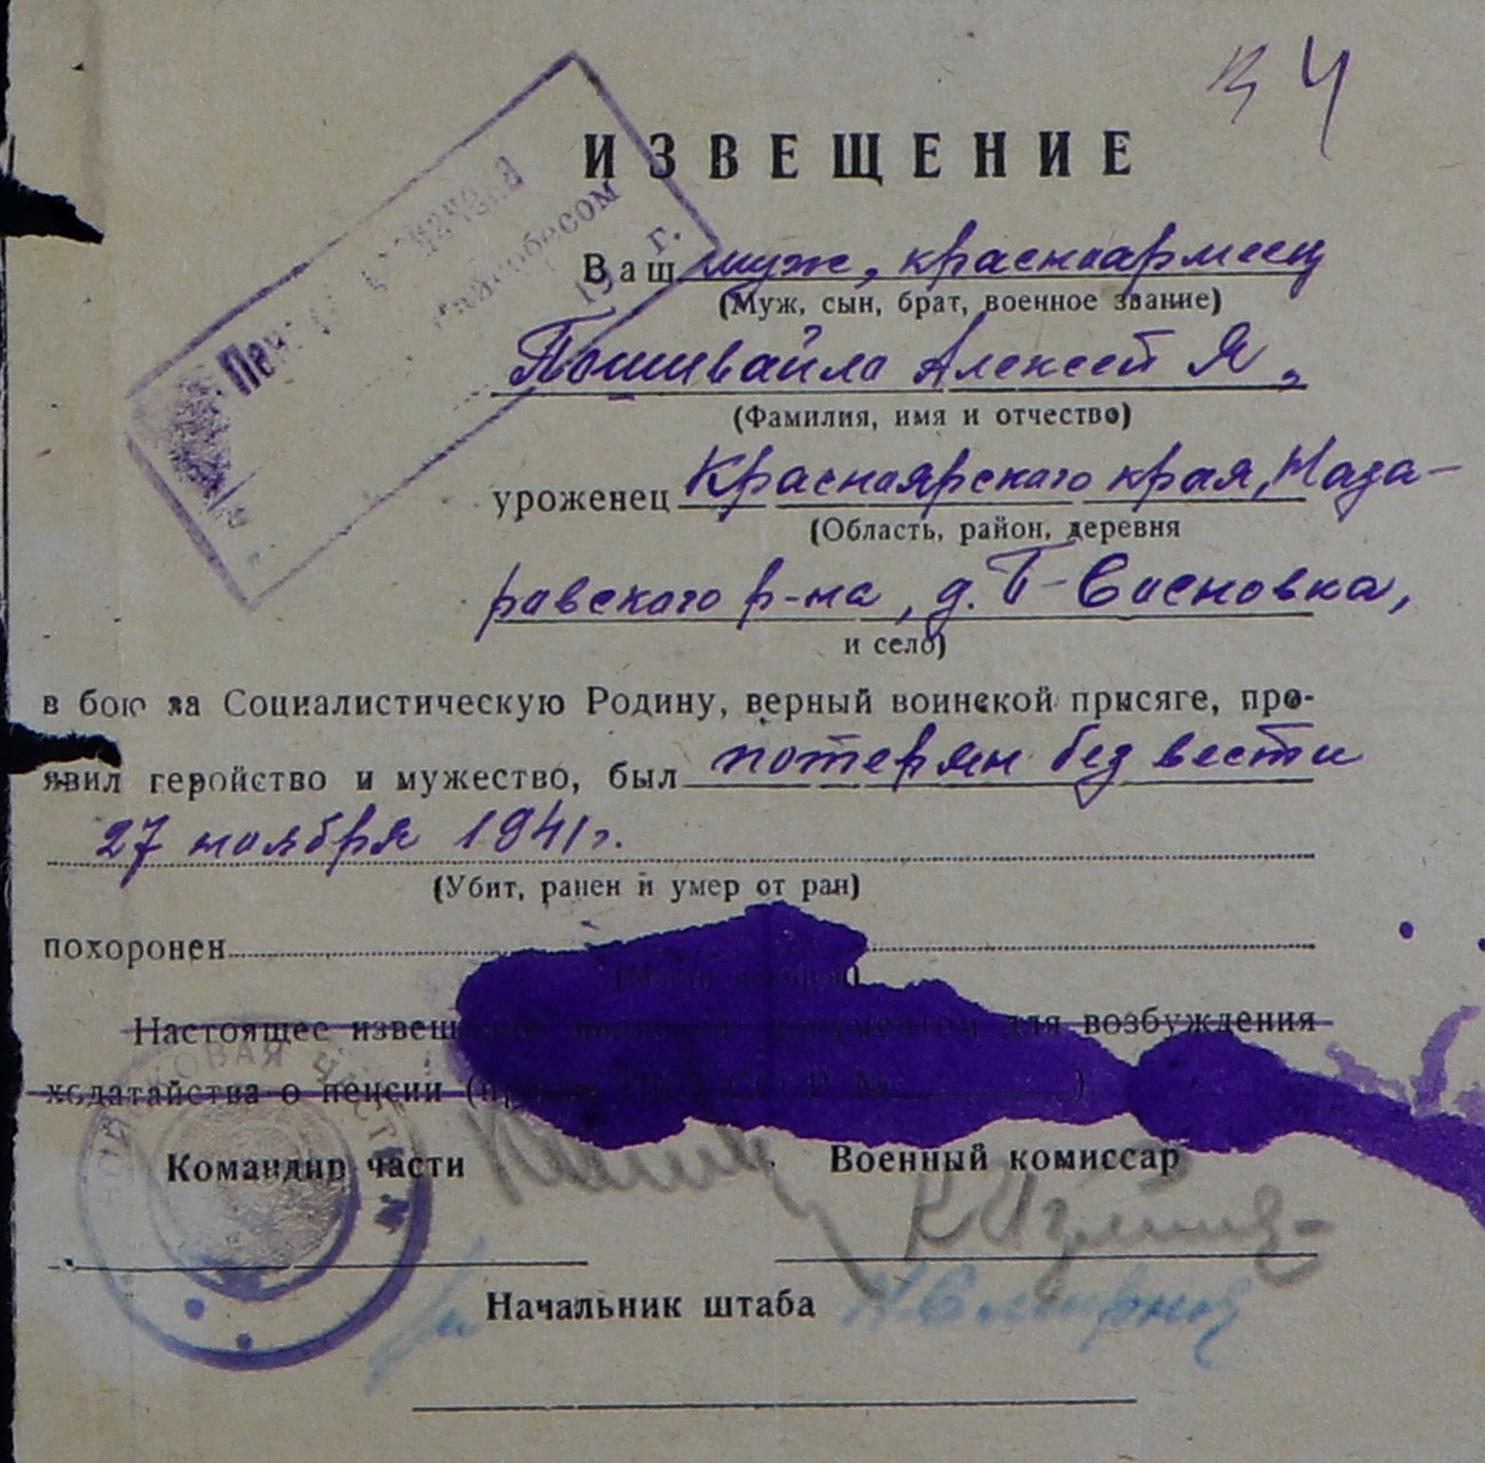 ИЗВЕЩЕНИЕ
Ваш муж, красноармеец
(Муж, сын, брат, военное звание)
Пошивайла Алексей Я.
(Фамилия, имя и отчество)
уроженец Красноярского края, Наза-
(Область, район, деревня
ровского р-на, д. Сосновка,
и село)
в бою за Социалистическую Родину, верный воинской присяге, про-
явил геройство и мужество, был потерян без вести
27 ноября 1941 г.
(Убит, ранен и умер от ран)
похоронен
Настоящее для возбуждения
ходатайства о пенсии
Командир части
Военный комиссар
Начальник штаба
19 г.